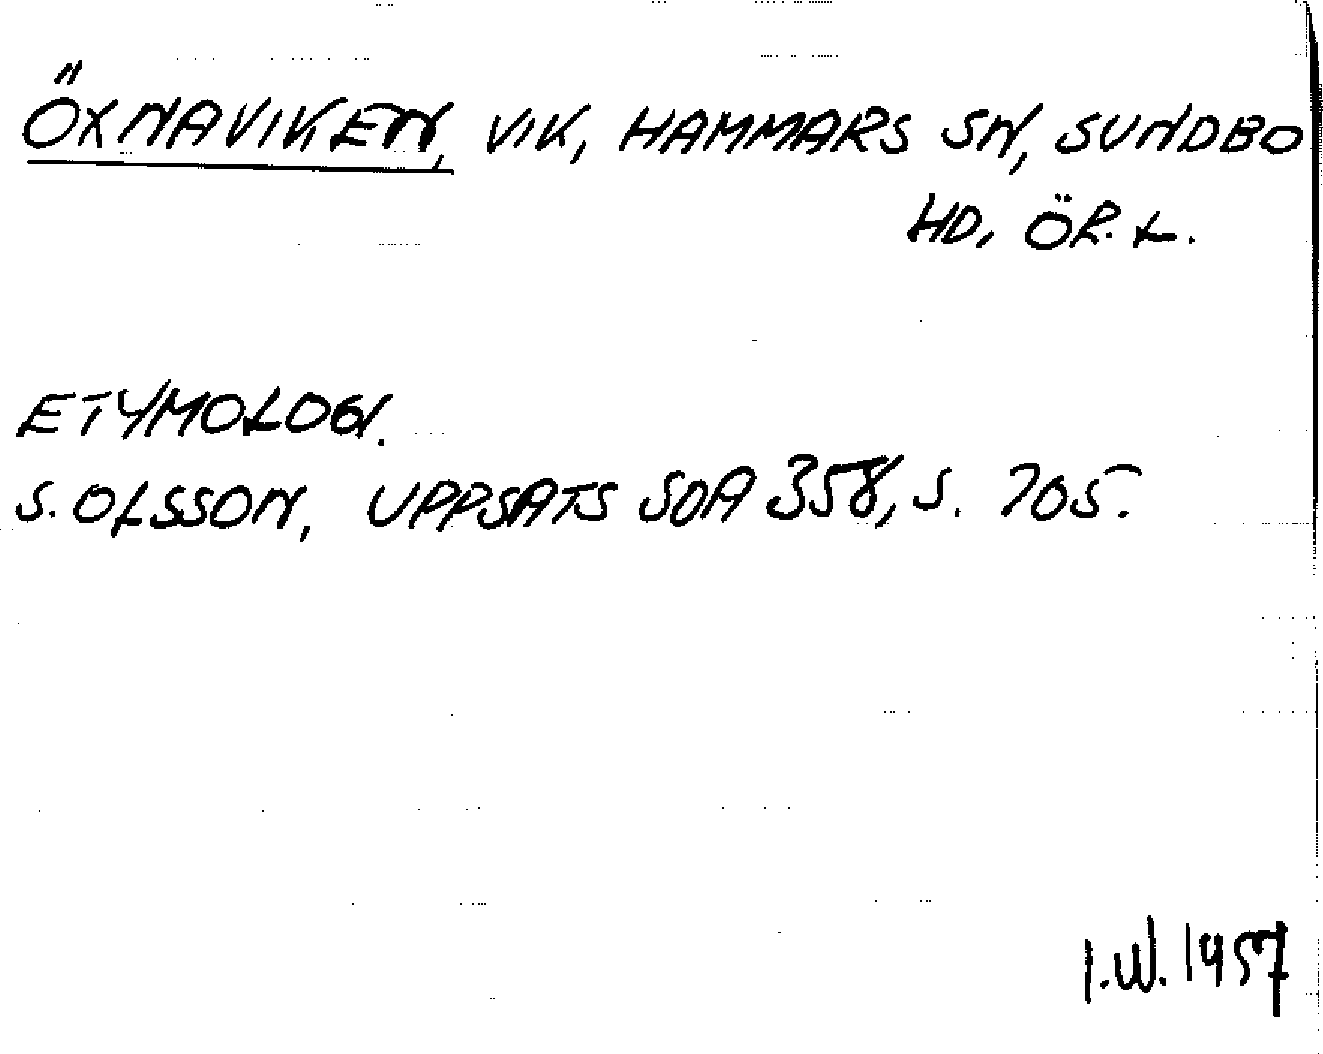 ÖXNAVIKEN, VIK, HAMMARS SN, SUNDBO
HD, ÖR. L.
ETYMOLOGI.
S. OLSSON, UPPSATS SOA 358, S. 705.
I.W. 1957